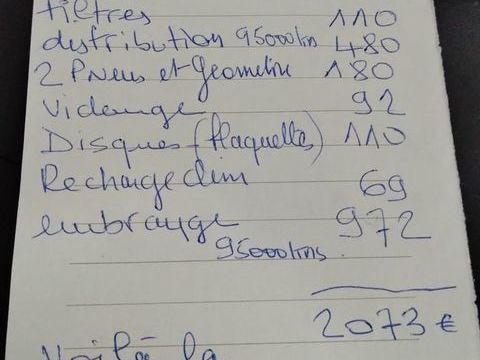 filtres 110
distribution 95000km 480
2 Pneus et Geometrie 180
Vidange 92
Disques (plaquettes) 110
Recharge clim 69
embrayage 972
95000kms.
2073 €
Voilà la